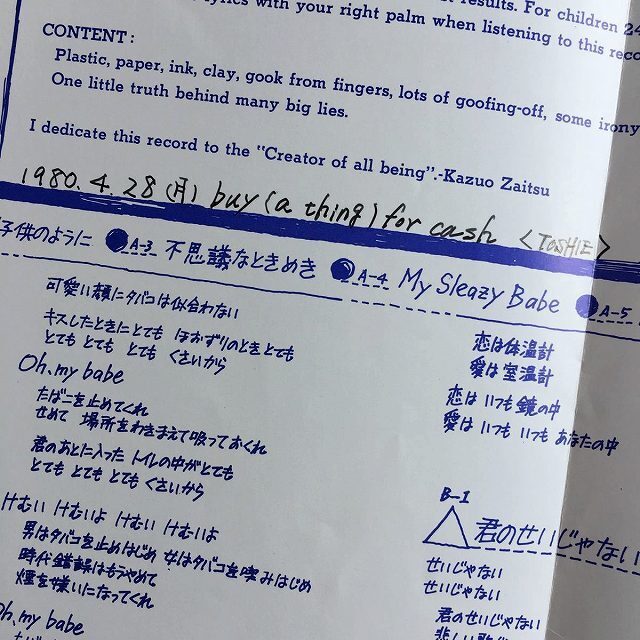 results. For children 24
lyrics with your right palm when listening to this reco
CONTENT:
Plastic, paper, ink, clay, gook from fingers, lots of goofing-off, some irony
One little truth behind many big lies.
I dedicate this record to the "Creator of all being".-Kazuo Zaitsu
1980.4.28(月) buy (a thing) for cash <TOSHIE>
子供のように A-3 不思議なときめき A-4 My Sleazy Babe A-5
可愛い顔にタバコは似合わない
キスしたときにとても ほおずりのときとても
とても とても とても くさいから
Oh, my babe
たばこを止めてくれ
せめて 場所をわきまえて吸っておくれ
君のあとに入った トイレの中がとても
とても とても とても くさいから
けむい けむいよ けむい けむいよ
男はタバコを止めはじめ 女はタバコを喫みはじめ
時代錯誤はもうやめて
煙を嫌いになってくれ
Oh, my babe
恋は体温計
愛は室温計
恋は いつも 鏡の中
愛は いつも いつも あなたの中
B-1
君のせいじゃない
せいじゃない
せいじゃない
君のせいじゃない